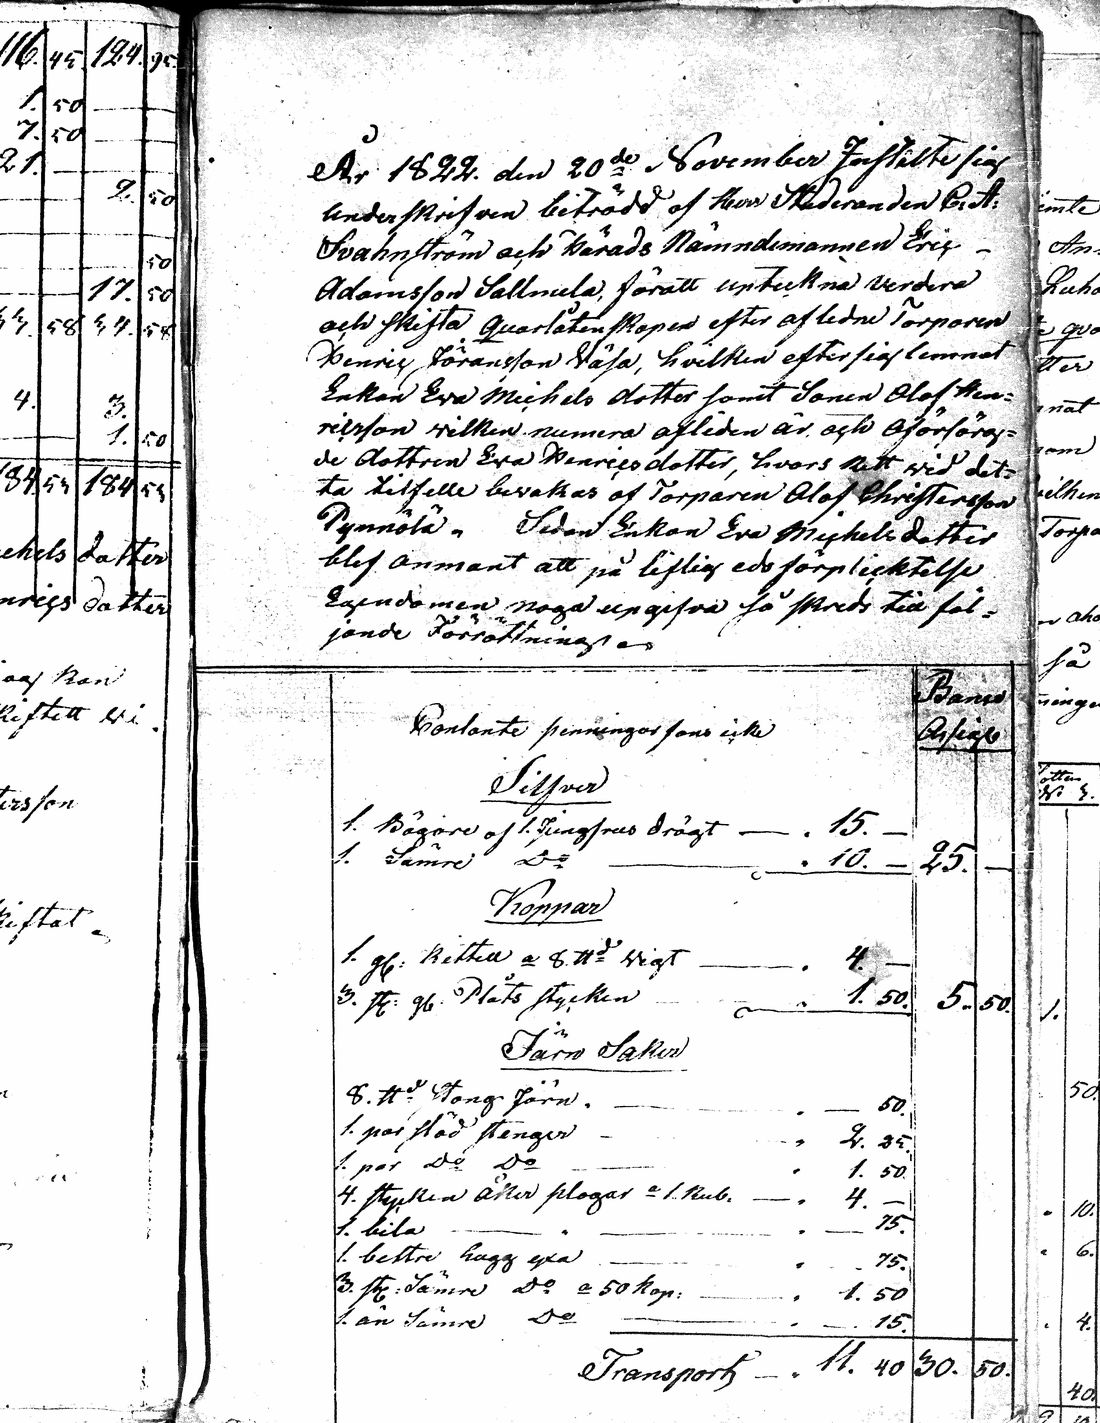 116. 45. 124. 95.
1. 50
7. 50
21.
2. 50
50
17. 50
58 34. 58
4. 3.
1. 50
184. 53 184 53
chels dotter
nrics dotter
jag kan
skiftett wi
tersson
skiftat
År 1822. den 20de November Instälte sig
underskrifven biträdd af Herr Studeranden C. A.
Svahnström och Härads Nämndemannen Eric
Adamsson Sallmela, föratt uptekna verdera
och skifta Quarlåtenskapen efter aflidne Torparen
Henric Jöransson Wäsa, hvilken efter sig lemnat
Enkan Eva Michels dotter samt Sonen Olof Hen=
ricsson wilken numera afliden är, och Oförsörg=
de dottren Eva Henricsdotter, hvars Rätt wid det=
ta tilfelle bewakas af Torparen Olof Christersson
Pynnölä. Sedan Enkan Eva Michelsdotter
blef anmant att på liflig edsförplicktelse
Egendomen noga uppgifva så skreds till föl=
jande Förrättning.
Banco
Assign
Contante penningar fans icke
Silfver
1. Bägare af 1. Jungfrus drägt — 15. —
1. Sämre Do — 10. — 25. —
Koppar
1. gl: kittell a 8. ttd wigt — 4. —
3. st: gl. Plåts stycken 1. 50. 5. 50.
Järn Saker
8. ttd Stong Järn. — 50.
1. par stöd stenger — 2. 25.
1. par Do Do 1. 50
4. stycken åker plogar a 1. Rub. — 4. —
1. bila — 75.
1. bettre hugg yxa 75.
3. st: Sämre Do a 50 kop: 1. 50
1. än Sämre Do — 15.
Transport — 11. 40 30. 50.
imte
An=
tter
nnat
som
wilken
Torpa
så
ninge
1.
50.
10.
6.
4.
40.